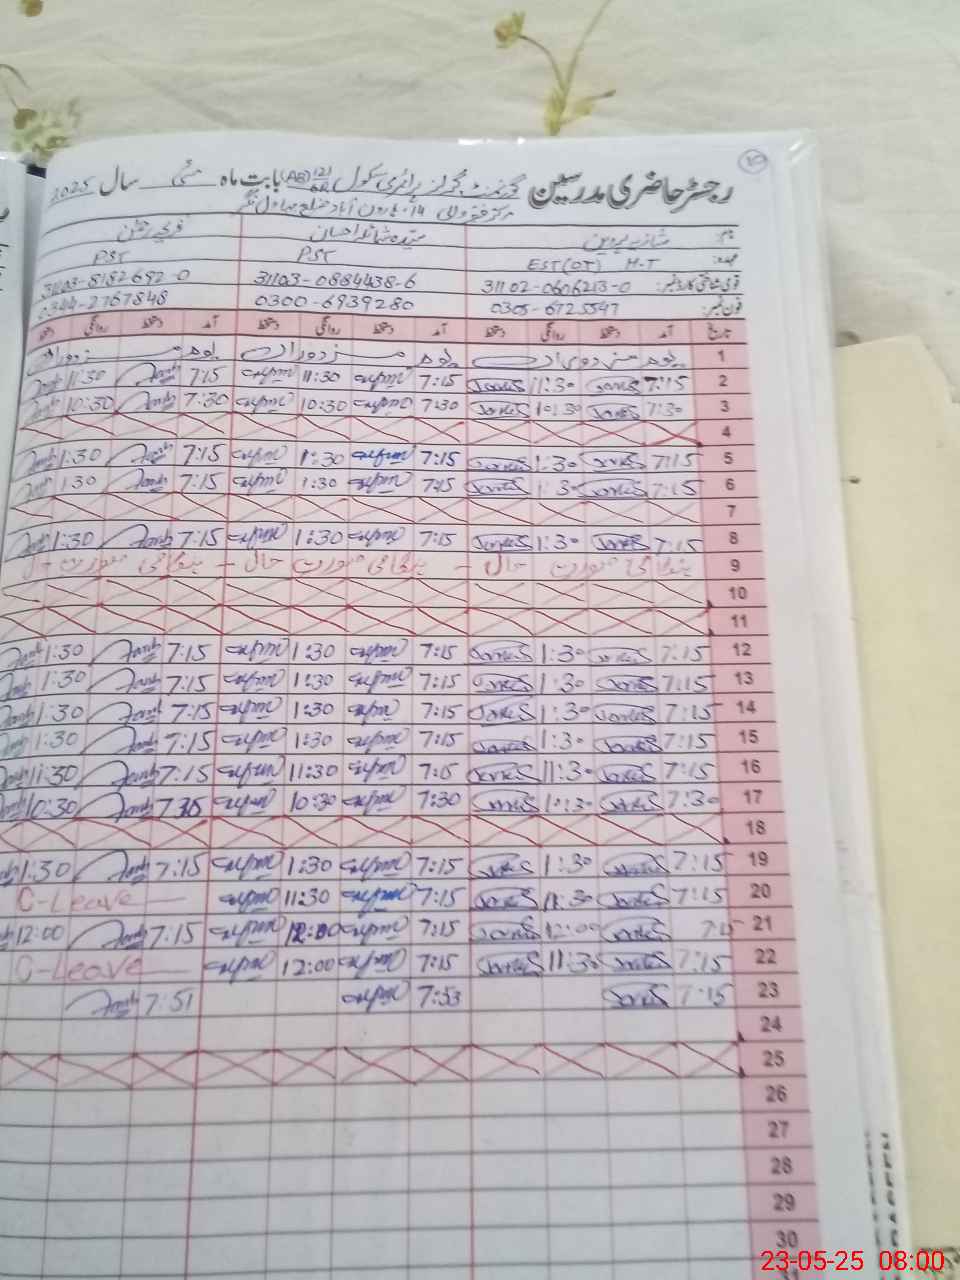 10
رجسٹر حاضری مدرسین گورنمنٹ گرلز پرائمری سکول 121/6R (AB) بابت ماہ مئی سال 2025
مرکز فقیروالی 14 ہارون آباد ضلع بہاول نگر
نام: شازیہ پروین سیدہ شمائلہ احسان
عہدہ: EST(OT) H-T PST PST
قومی شناختی کارڈ نمبر: 31102-0606213-0 31103-0884438-6 31103-8182692-0
فون نمبر: 0305-6725597 0300-6939280 0344-2767848
تاریخ آمد دستخط روانگی دستخط آمد دستخط روانگی دستخط آمد دستخط روانگی دستخط
1 یوم مزدوراں یوم مزدوراں یوم مزدوراں
2 7:15 11:30 7:15 11:30 7:15 11:30
3 7:30 10:30 7:30 10:30 7:30 10:30
4
5 7:15 1:30 7:15 1:30 7:15 1:30
6 7:15 1:30 7:15 1:30 7:15 1:30
7
8 7:15 1:30 7:15 1:30 7:15 1:30
9 ہنگامی صورت حال - ہنگامی صورت حال - ہنگامی صورت حال
10
11
12 7:15 1:30 7:15 1:30 7:15 1:30
13 7:15 1:30 7:15 1:30 7:15 1:30
14 7:15 1:30 7:15 1:30 7:15 1:30
15 7:15 1:30 7:15 1:30 7:15 1:30
16 7:15 11:30 7:15 11:30 7:15 11:30
17 7:30 10:30 7:30 10:30 7:30 10:30
18
19 7:15 1:30 7:15 1:30 7:15 1:30
20 7:15 11:30 7:15 11:30 C-Leave
21 7:15 12:00 7:15 12:00 7:15 12:00
22 7:15 11:30 7:15 12:00 C-Leave
23 7:15 7:53 7:51
24
25
26
27
28
29
30
23-05-25 08:00